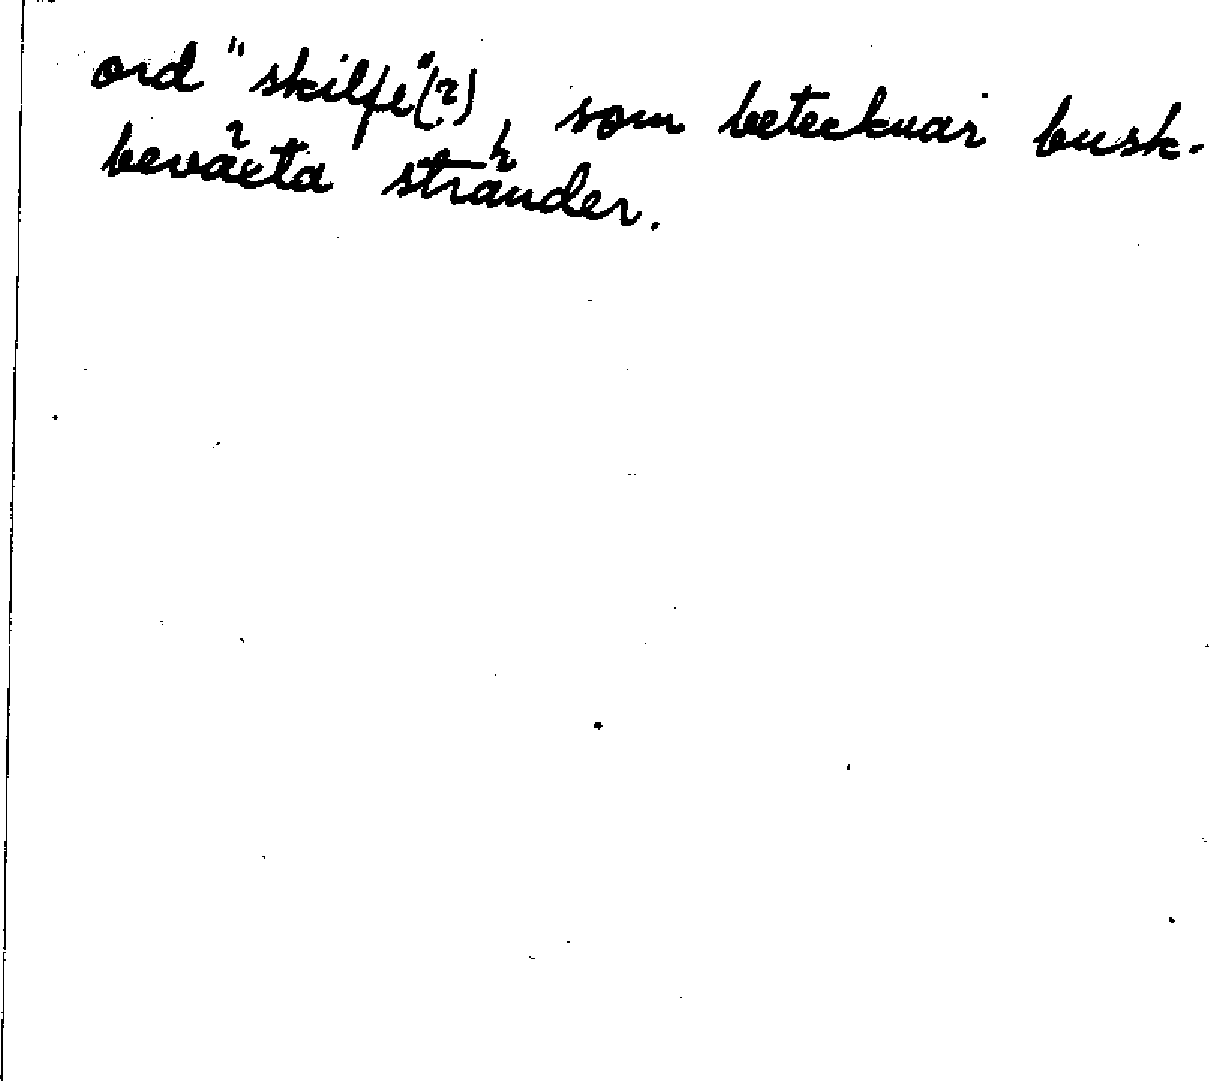 ord "skilfe" (?), som betecknar busk-
beväxta stränder.